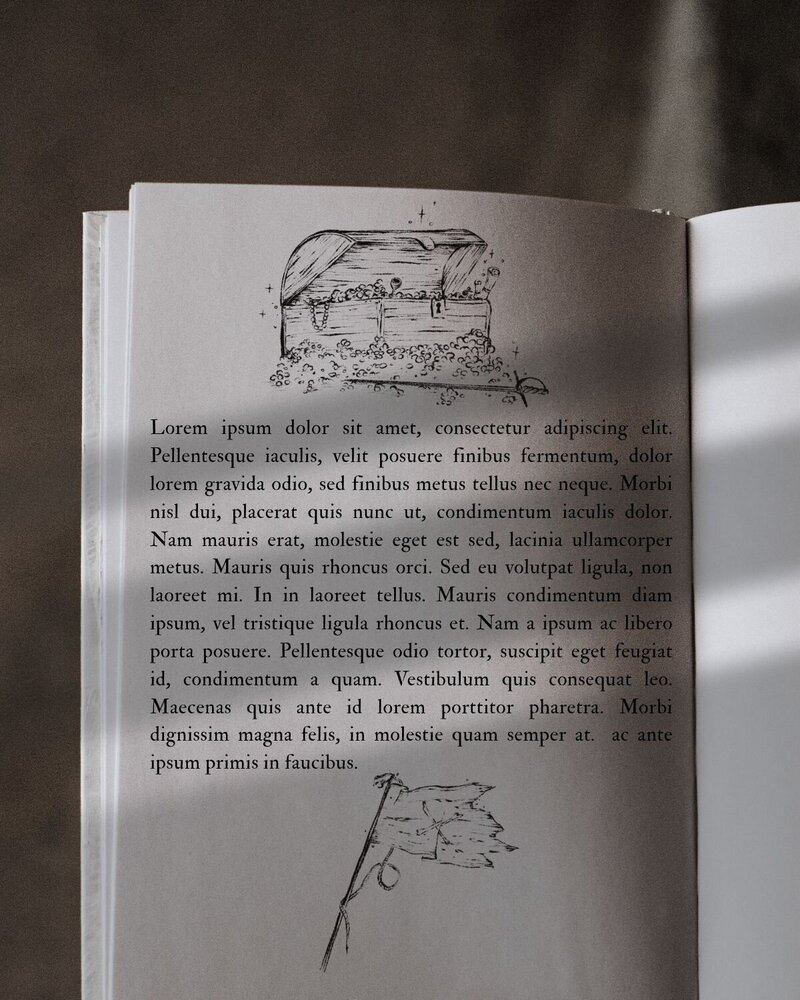 Lorem ipsum dolor sit amet, consectetur adipiscing elit.
Pellentesque iaculis, velit posuere finibus fermentum, dolor
lorem gravida odio, sed finibus metus tellus nec neque. Morbi
nisl dui, placerat quis nunc ut, condimentum iaculis dolor.
Nam mauris erat, molestie eget est sed, lacinia ullamcorper
metus. Mauris quis rhoncus orci. Sed eu volutpat ligula, non
laoreet mi. In in laoreet tellus. Mauris condimentum diam
ipsum, vel tristique ligula rhoncus et. Nam a ipsum ac libero
porta posuere. Pellentesque odio tortor, suscipit eget feugiat
id, condimentum a quam. Vestibulum quis consequat leo.
Maecenas quis ante id lorem porttitor pharetra. Morbi
dignissim magna felis, in molestie quam semper at. ac ante
ipsum primis in faucibus.